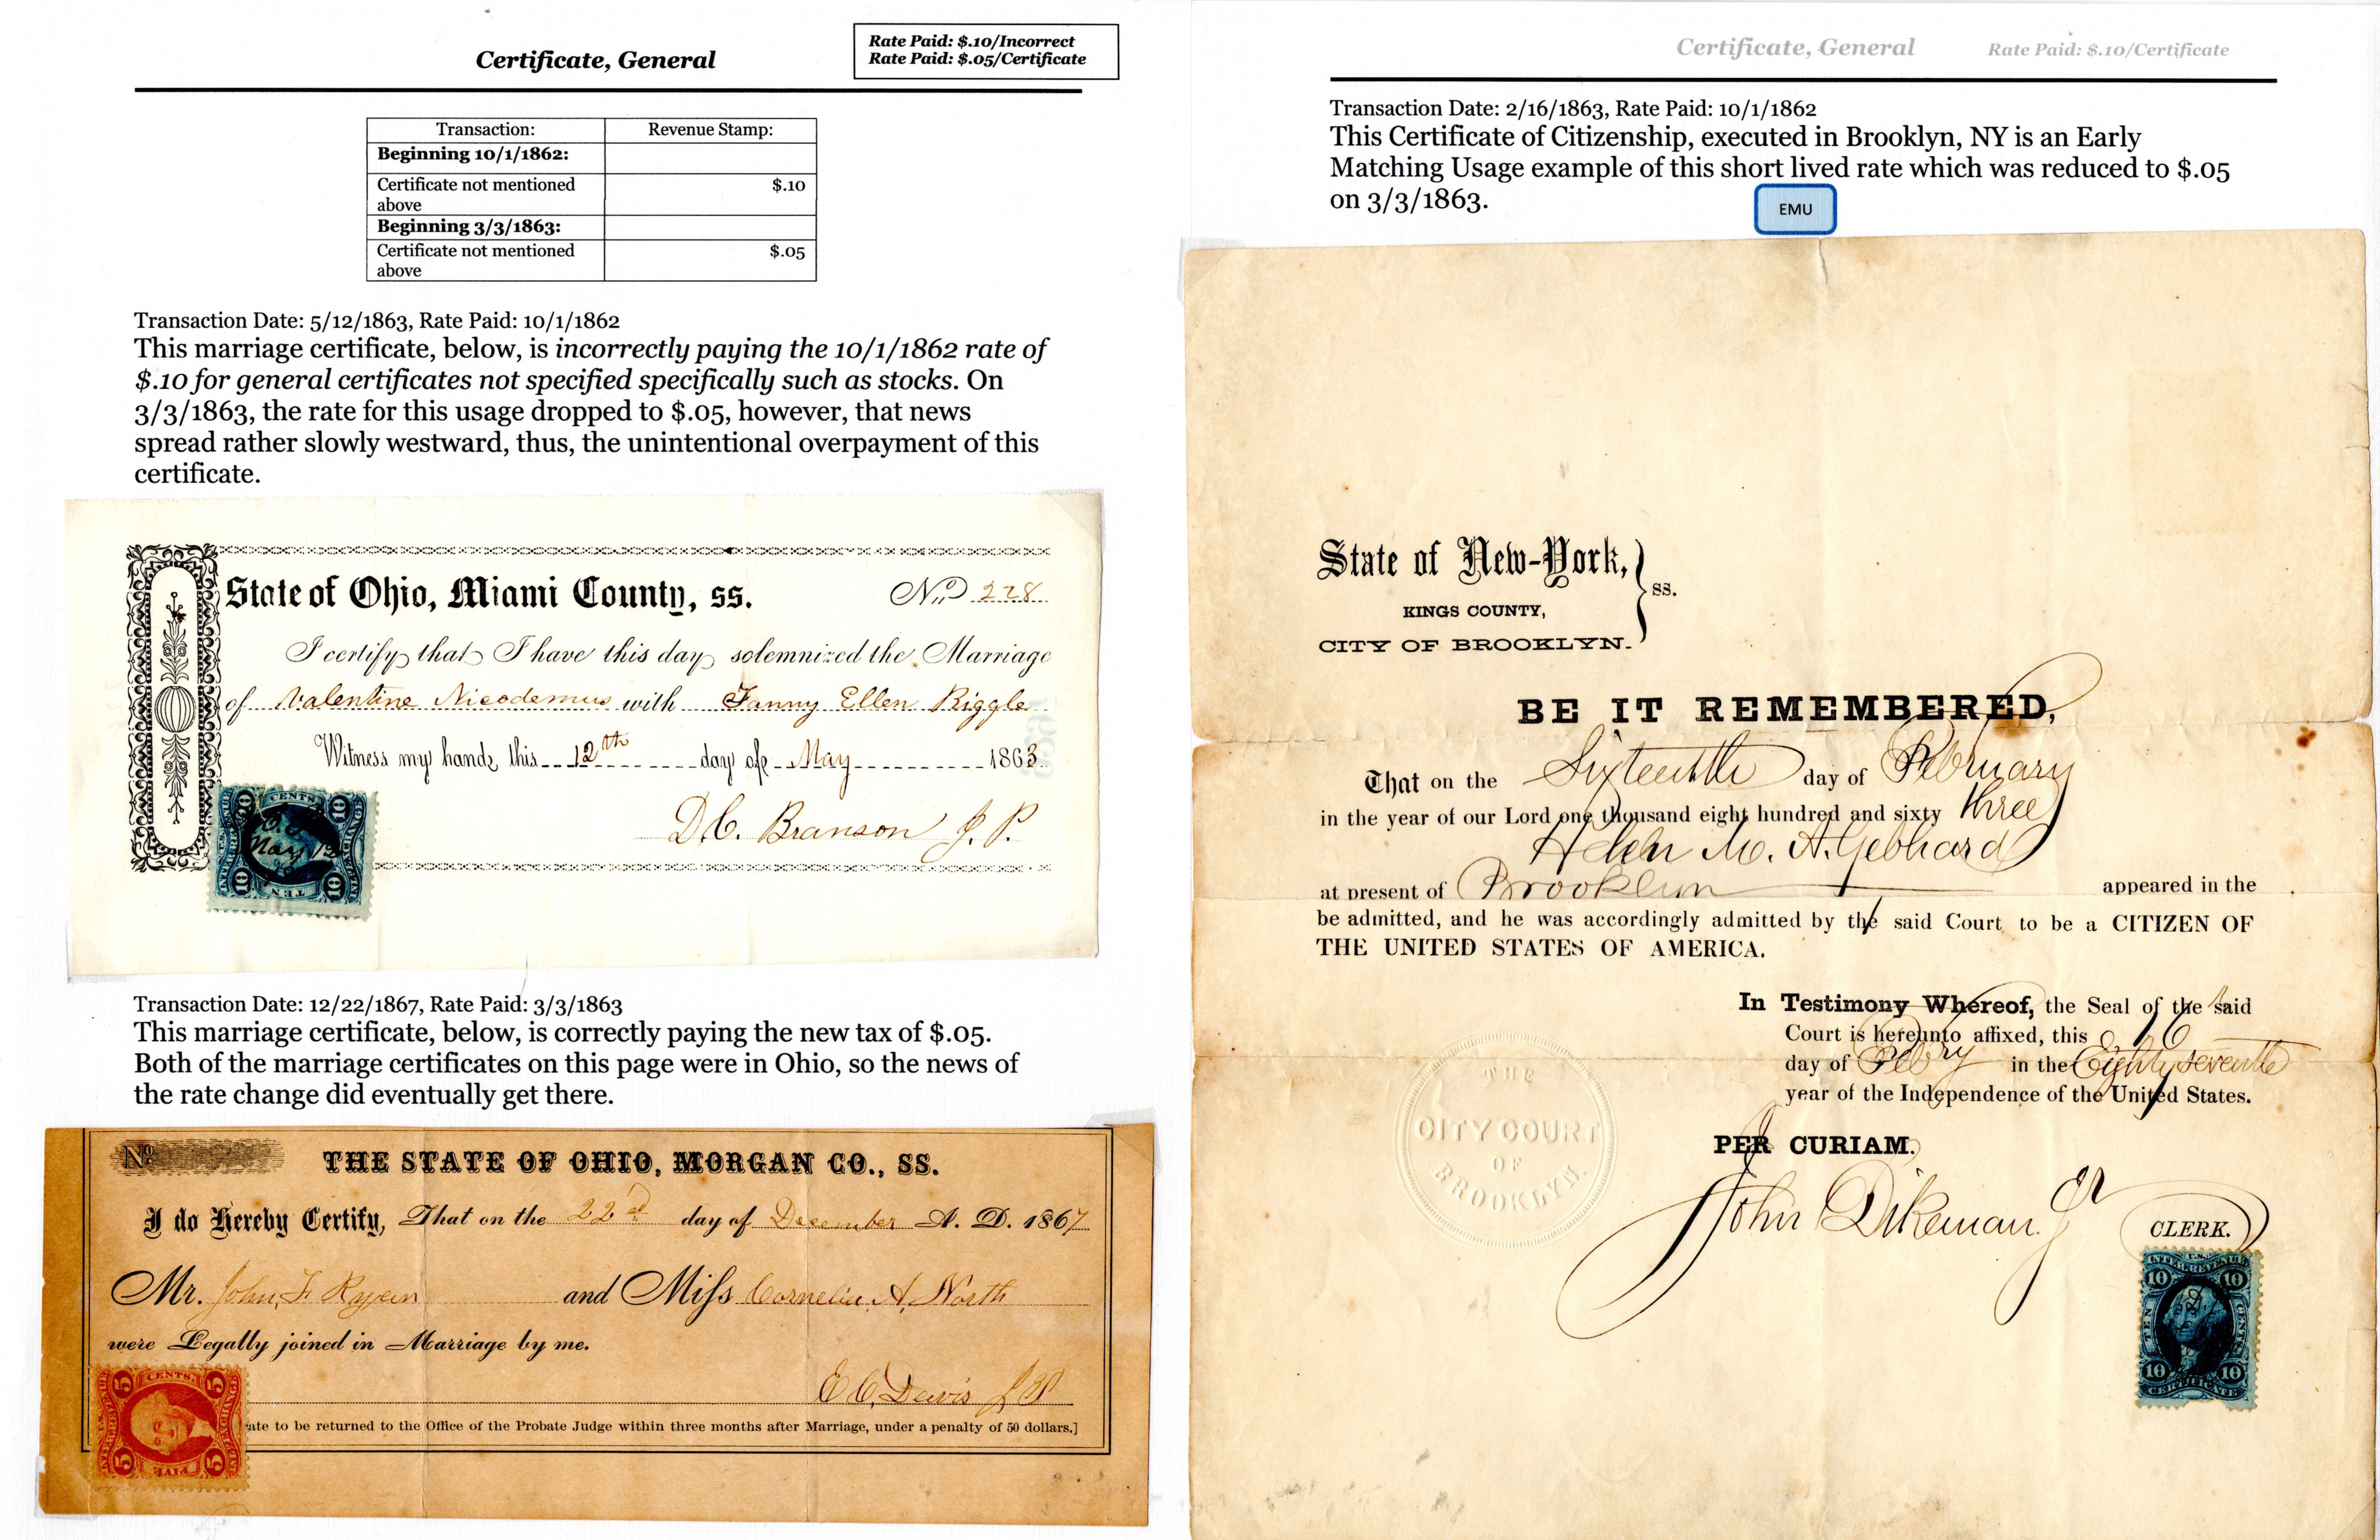 Certificate, General
Rate Paid: $.10/Incorrect
Rate Paid: $.05/Certificate
Transaction: Revenue Stamp:
Beginning 10/1/1862:
Certificate not mentioned above $.10
Beginning 3/3/1863:
Certificate not mentioned above $.05
Transaction Date: 5/12/1863, Rate Paid: 10/1/1862
This marriage certificate, below, is incorrectly paying the 10/1/1862 rate of
$.10 for general certificates not specified specifically such as stocks. On
3/3/1863, the rate for this usage dropped to $.05, however, that news
spread rather slowly westward, thus, the unintentional overpayment of this
certificate.
State of Ohio, Miami County, ss. No 228
I certify that I have this day solemnized the Marriage
of Valentine Nicodemus with Fanny Ellen Riggle
Witness my hand, this 12th day of May 1863
D.C. Branson J.P.
CENTS
10 10
May 12
10 10
TEN
Transaction Date: 12/22/1867, Rate Paid: 3/3/1863
This marriage certificate, below, is correctly paying the new tax of $.05.
Both of the marriage certificates on this page were in Ohio, so the news of
the rate change did eventually get there.
No THE STATE OF OHIO, MORGAN CO., SS.
I do Hereby Certify, That on the 22nd day of December A. D. 1867
Mr. John F. Ryan and Miss Cornelia A. North
were Legally joined in Marriage by me.
E C Davis J P
ate to be returned to the Office of the Probate Judge within three months after Marriage, under a penalty of 50 dollars.]
5 CENTS 5
5 FIVE 5
Certificate, General Rate Paid: $.10/Certificate
Transaction Date: 2/16/1863, Rate Paid: 10/1/1862
This Certificate of Citizenship, executed in Brooklyn, NY is an Early
Matching Usage example of this short lived rate which was reduced to $.05
on 3/3/1863.
EMU
State of New-York,
KINGS COUNTY, ss.
CITY OF BROOKLYN.
BE IT REMEMBERED,
That on the Sixteenth day of February
in the year of our Lord one thousand eight hundred and sixty three
M. A. Gebhard
at present of Brooklyn appeared in the
be admitted, and he was accordingly admitted by the said Court to be a CITIZEN OF
THE UNITED STATES OF AMERICA.
In Testimony Whereof, the Seal of the said
Court is hereunto affixed, this 16
day of Feby in the Eighty seventh
year of the Independence of the United States.
THE
CITY COURT
OF
BROOKLYN.
PER CURIAM.
John Dikeman Jr
CLERK.
U.S.
INTER. REVENUE
10 10
TEN CENTS
10 10
CERTIFICATE